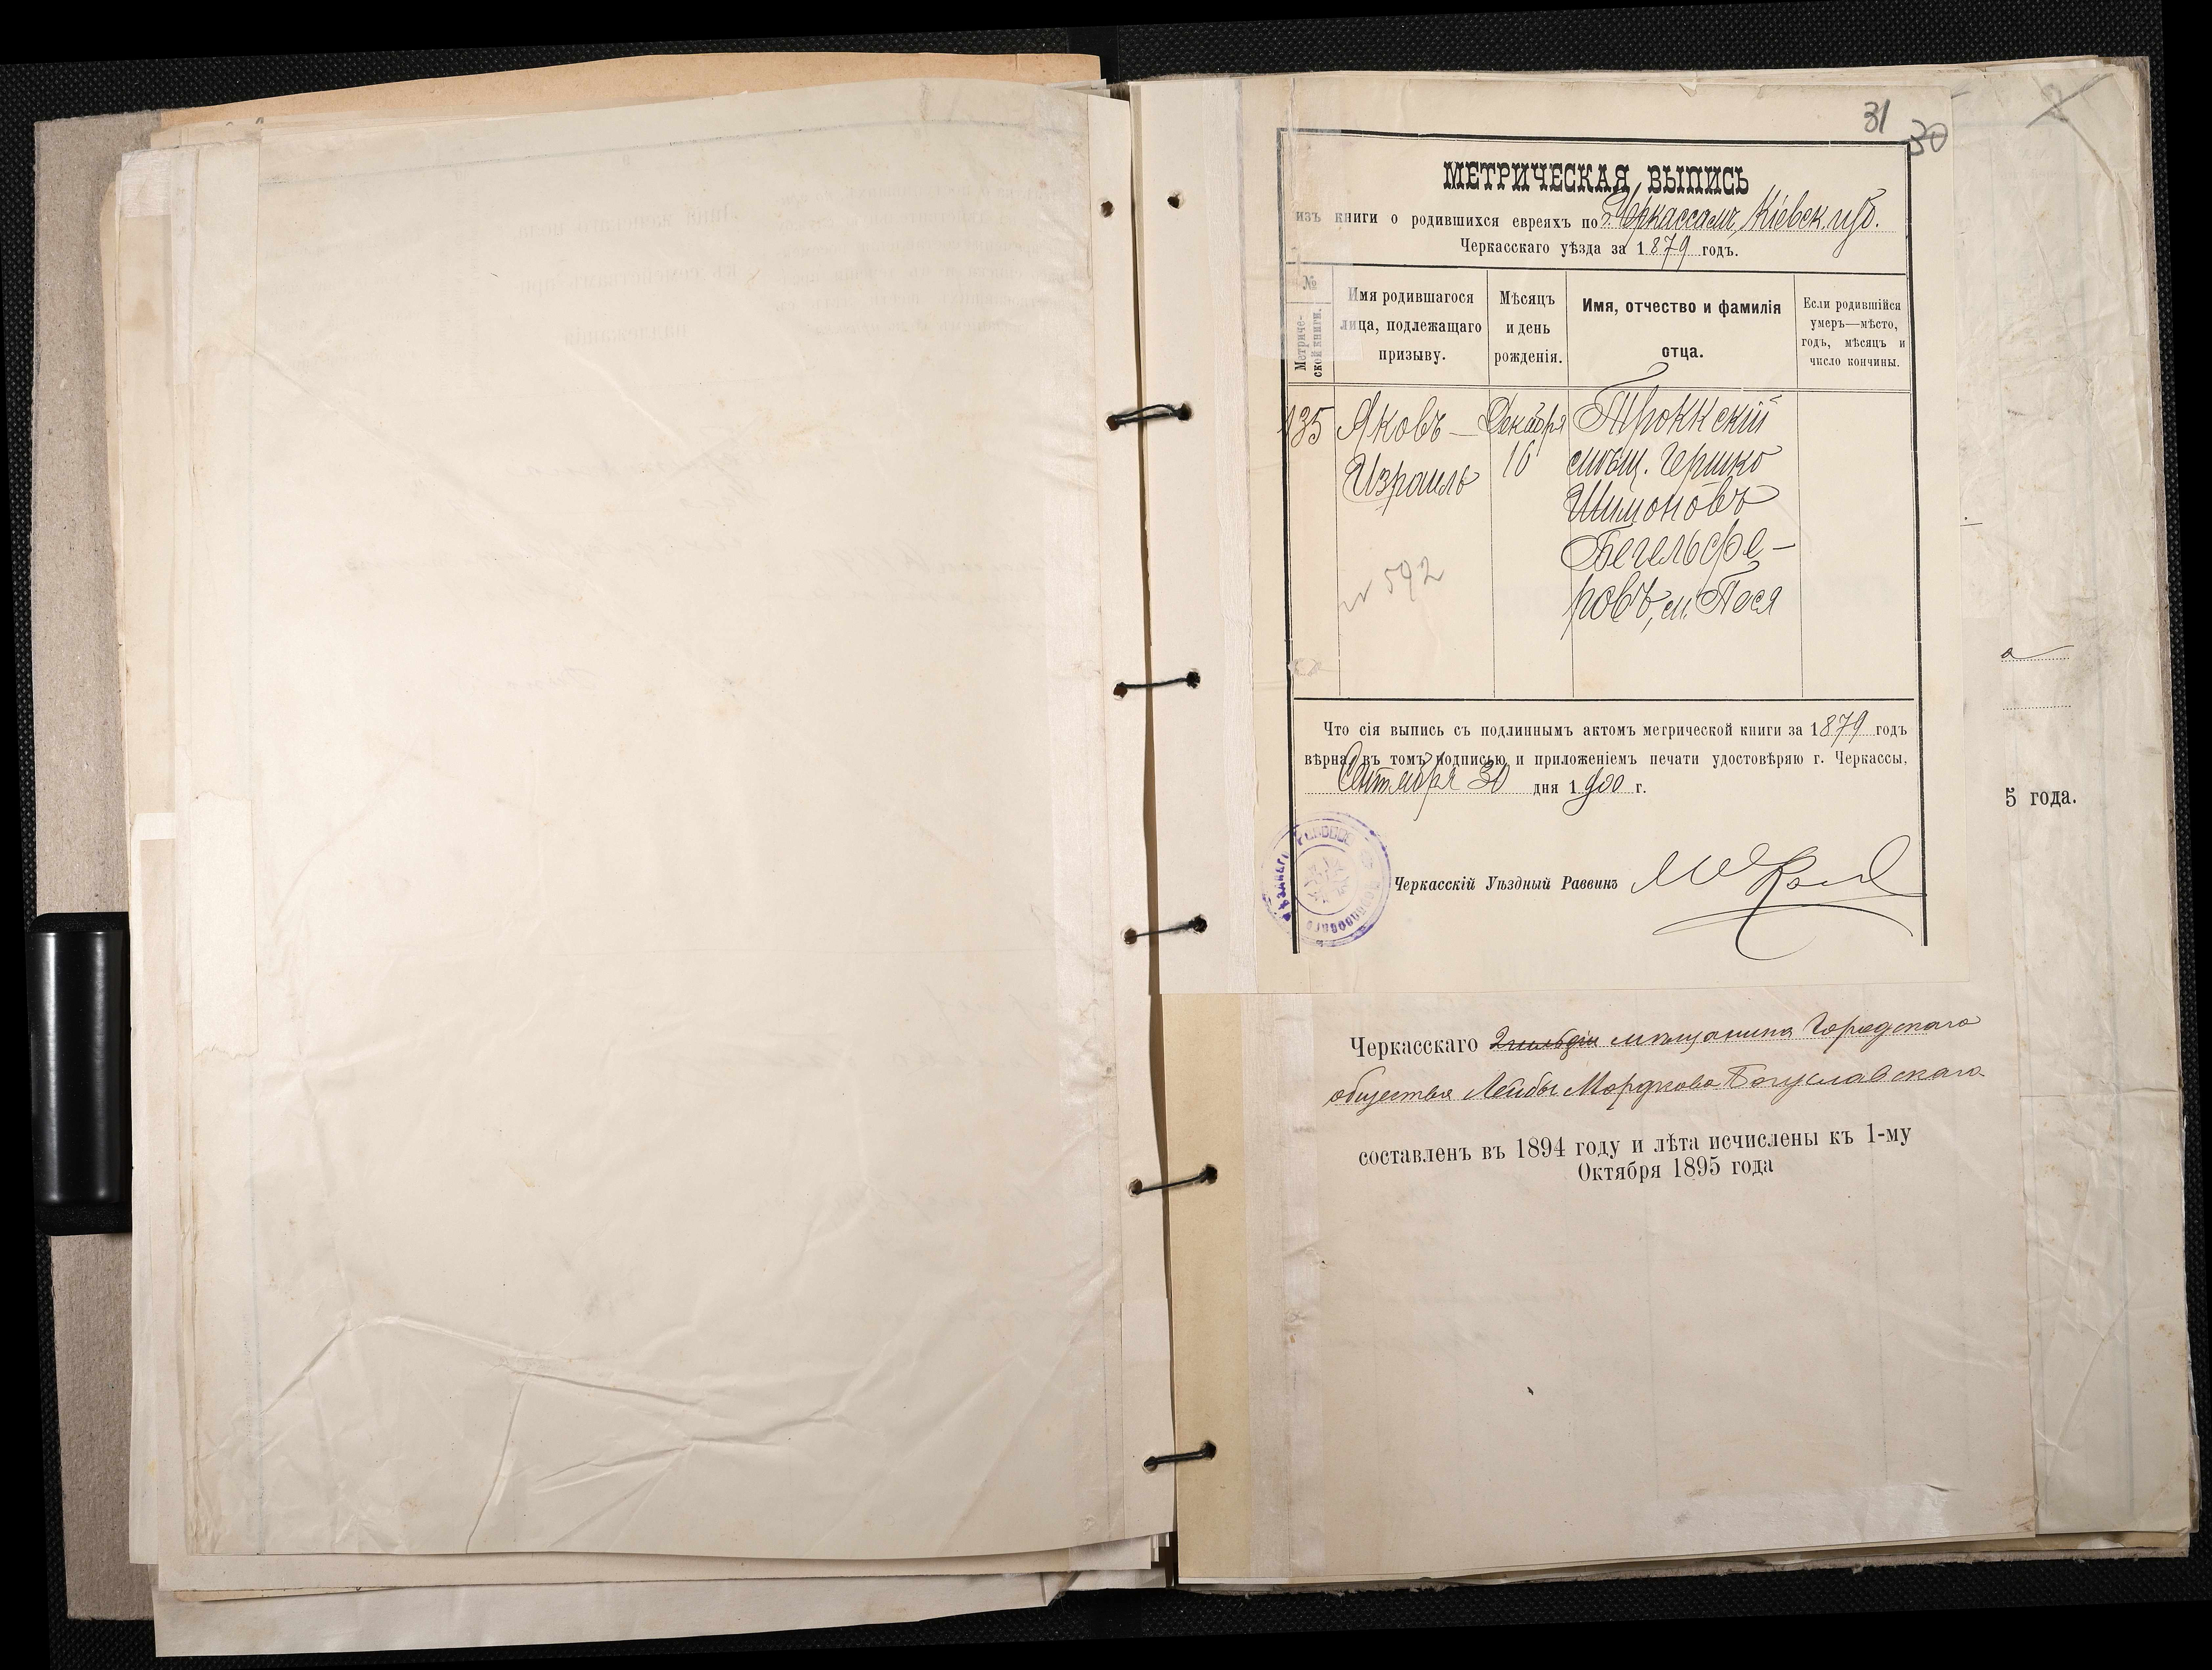 31
30
МЕТРИЧЕСКАЯ ВЫПИСЬ
изъ книги о родившихся евреяхъ по г. Черкассамъ, Кіевск. губ.
Черкасскаго уѣзда за 1879 годъ.
№ Метриче-ской книги.
Имя родившагося лица, подлежащаго призыву.
Мѣсяцъ и день рожденія.
Имя, отчество и фамилія отца.
Если родившійся умеръ—мѣсто, годъ, мѣсяцъ и число кончины.
135 Яковъ — Декабря Троккскій
Израиль 16 мѣщ. Гершко
Шимоновъ
Бегельфе-
ровъ, м. Песя
№ 592
Что сія выпись съ подлиннымъ актомъ метрической книги за 1879 годъ
вѣрна, въ томъ подписью и приложеніемъ печати удостовѣряю г. Черкассы,
Сентября 30 дня 1900 г.
Черкасскій Уѣздный Раввинъ
Черкасскаго 2 гильдіи мѣщанина Городскаго
общества Лейбы Мордкова Богуславскаго
составленъ въ 1894 году и лѣта исчислены къ 1-му
Октября 1895 года
а
5 года.